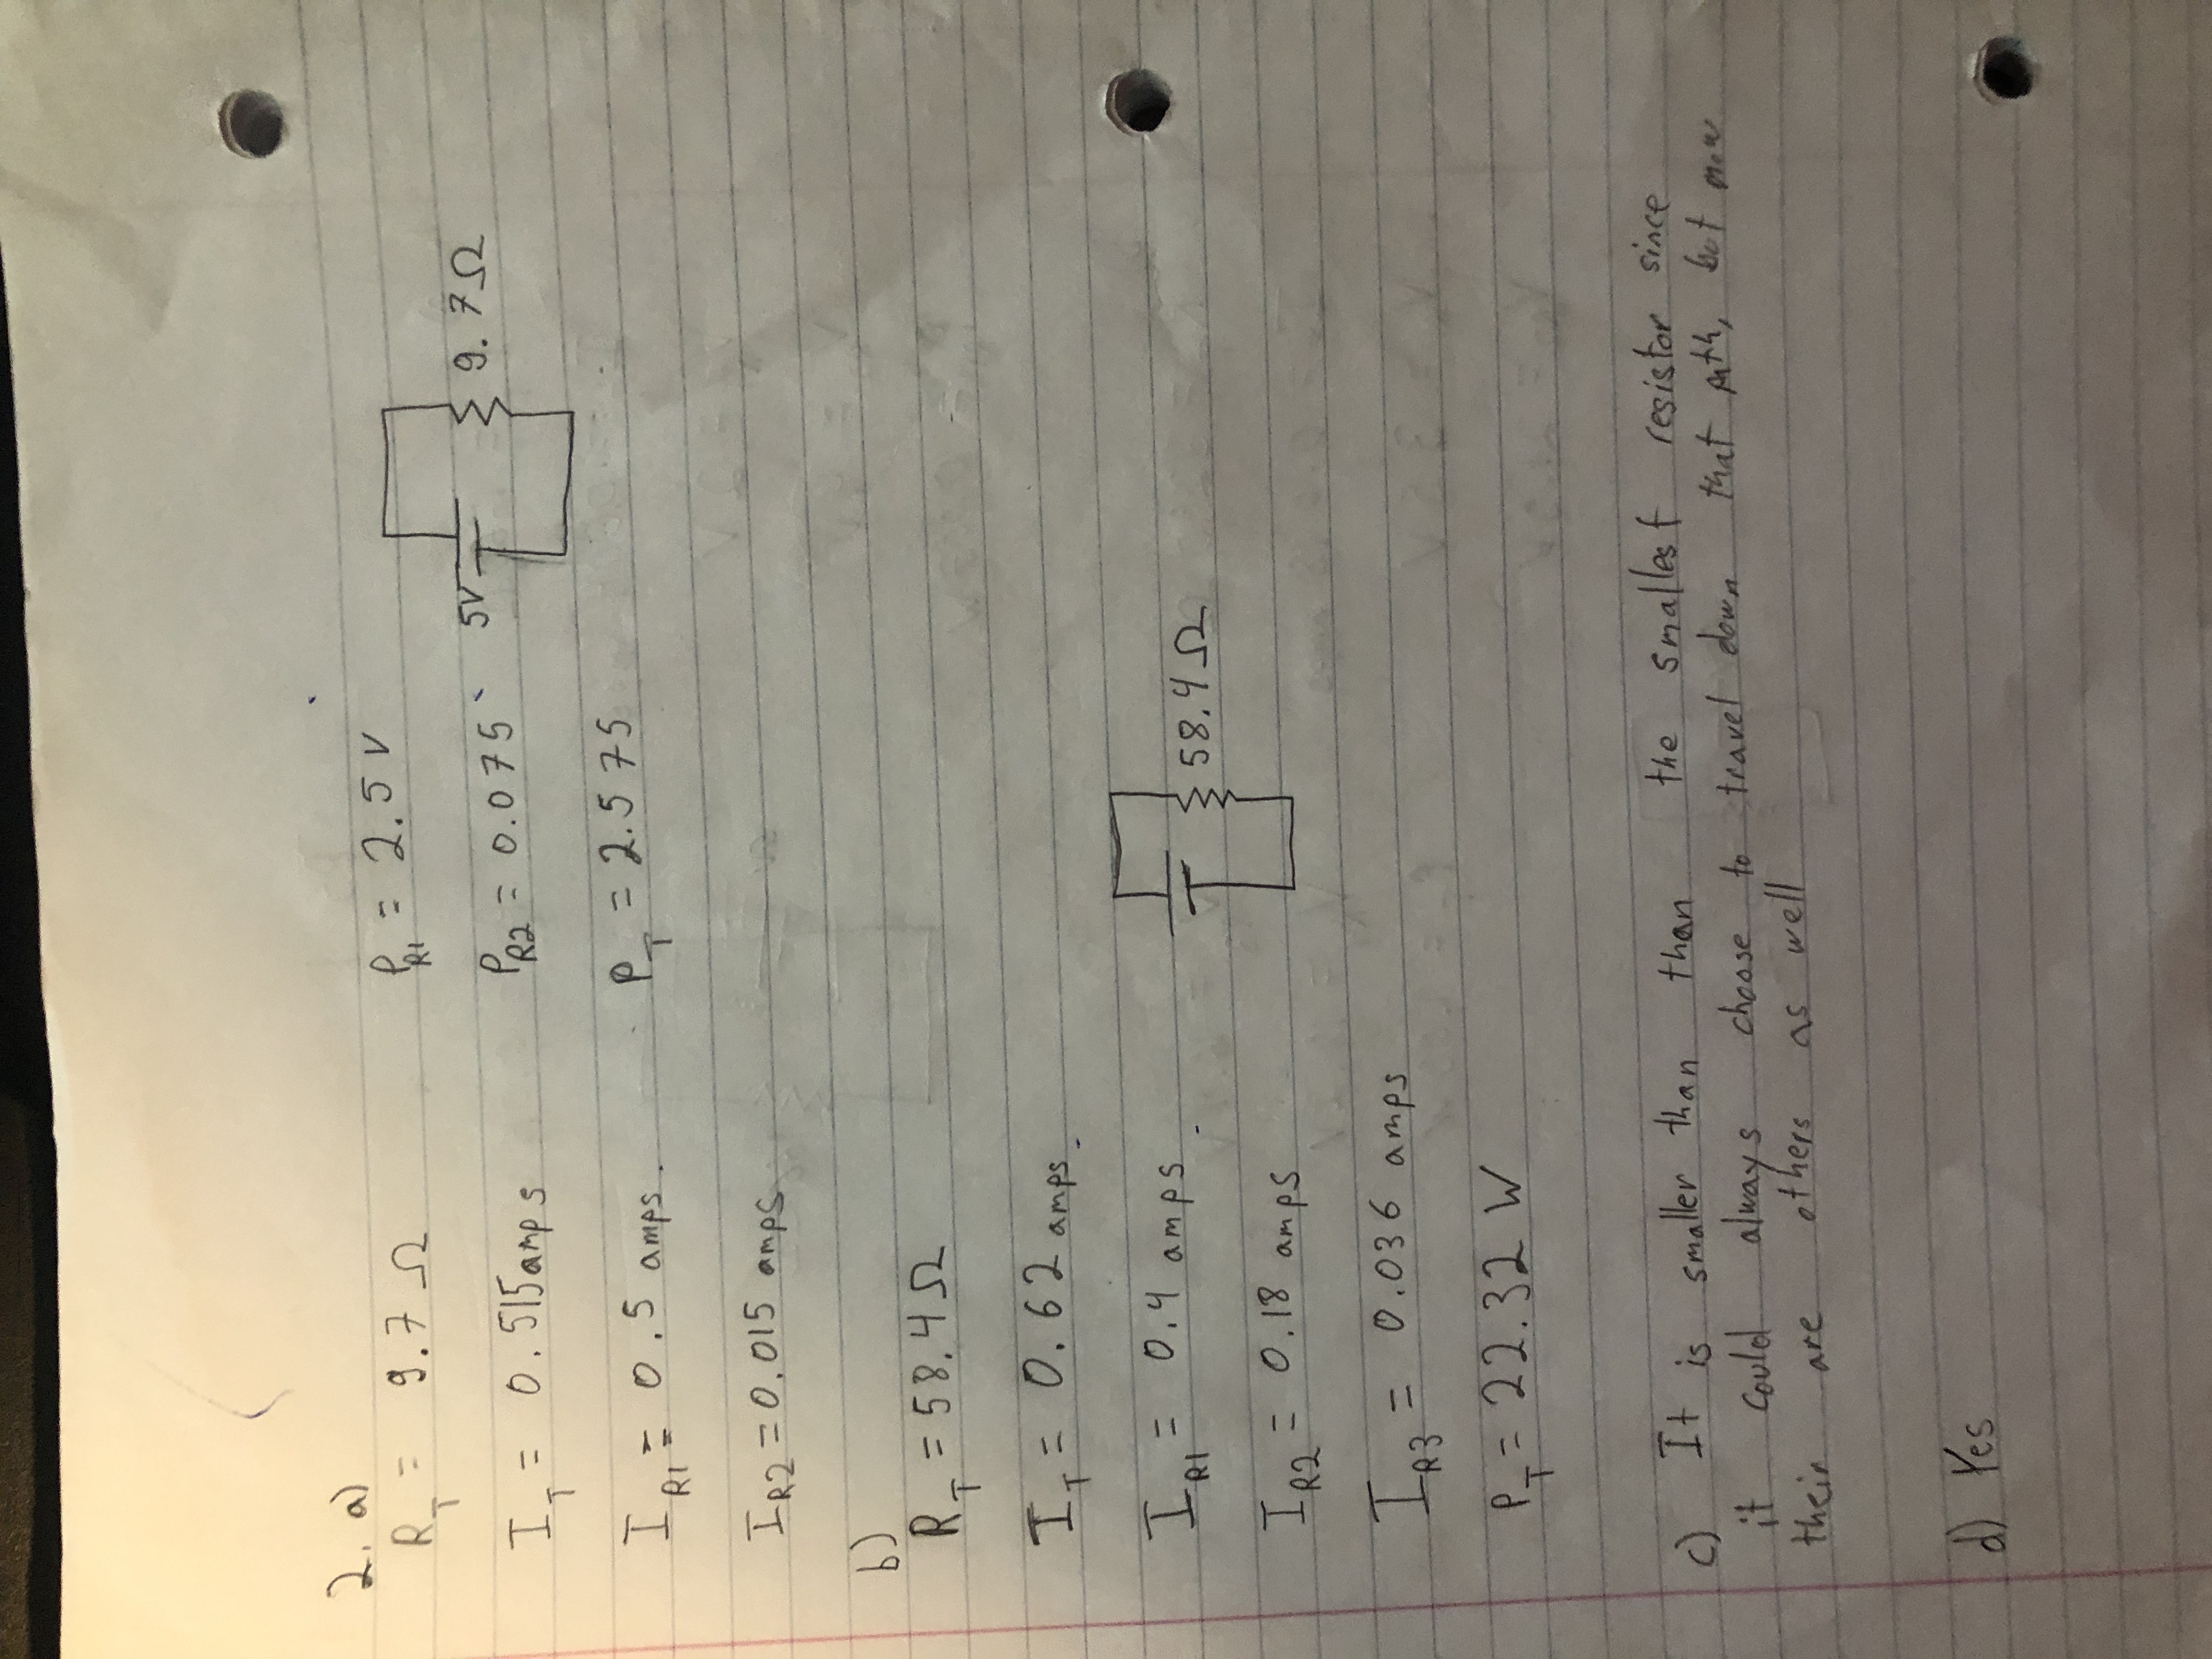 2. a)
R_T = 9.7 Ω
P_R1 = 2.5 V
5V
9.7 Ω
I_T = 0.515 amps
P_R2 = 0.075
I_R1 = 0.5 amps.
P_T = 2.575
I_R2 = 0.015 amps
b)
R_T = 58.4 Ω
I_T = 0.62 amps.
I_R1 = 0.4 amps.
58.4 Ω
I_R2 = 0.18 amps
I_R3 = 0.036 amps
P_T = 22.32 W
c) It is smaller than than the smallest resistor since
it could always choose to travel down that path, but now
their are others as well
d) Yes